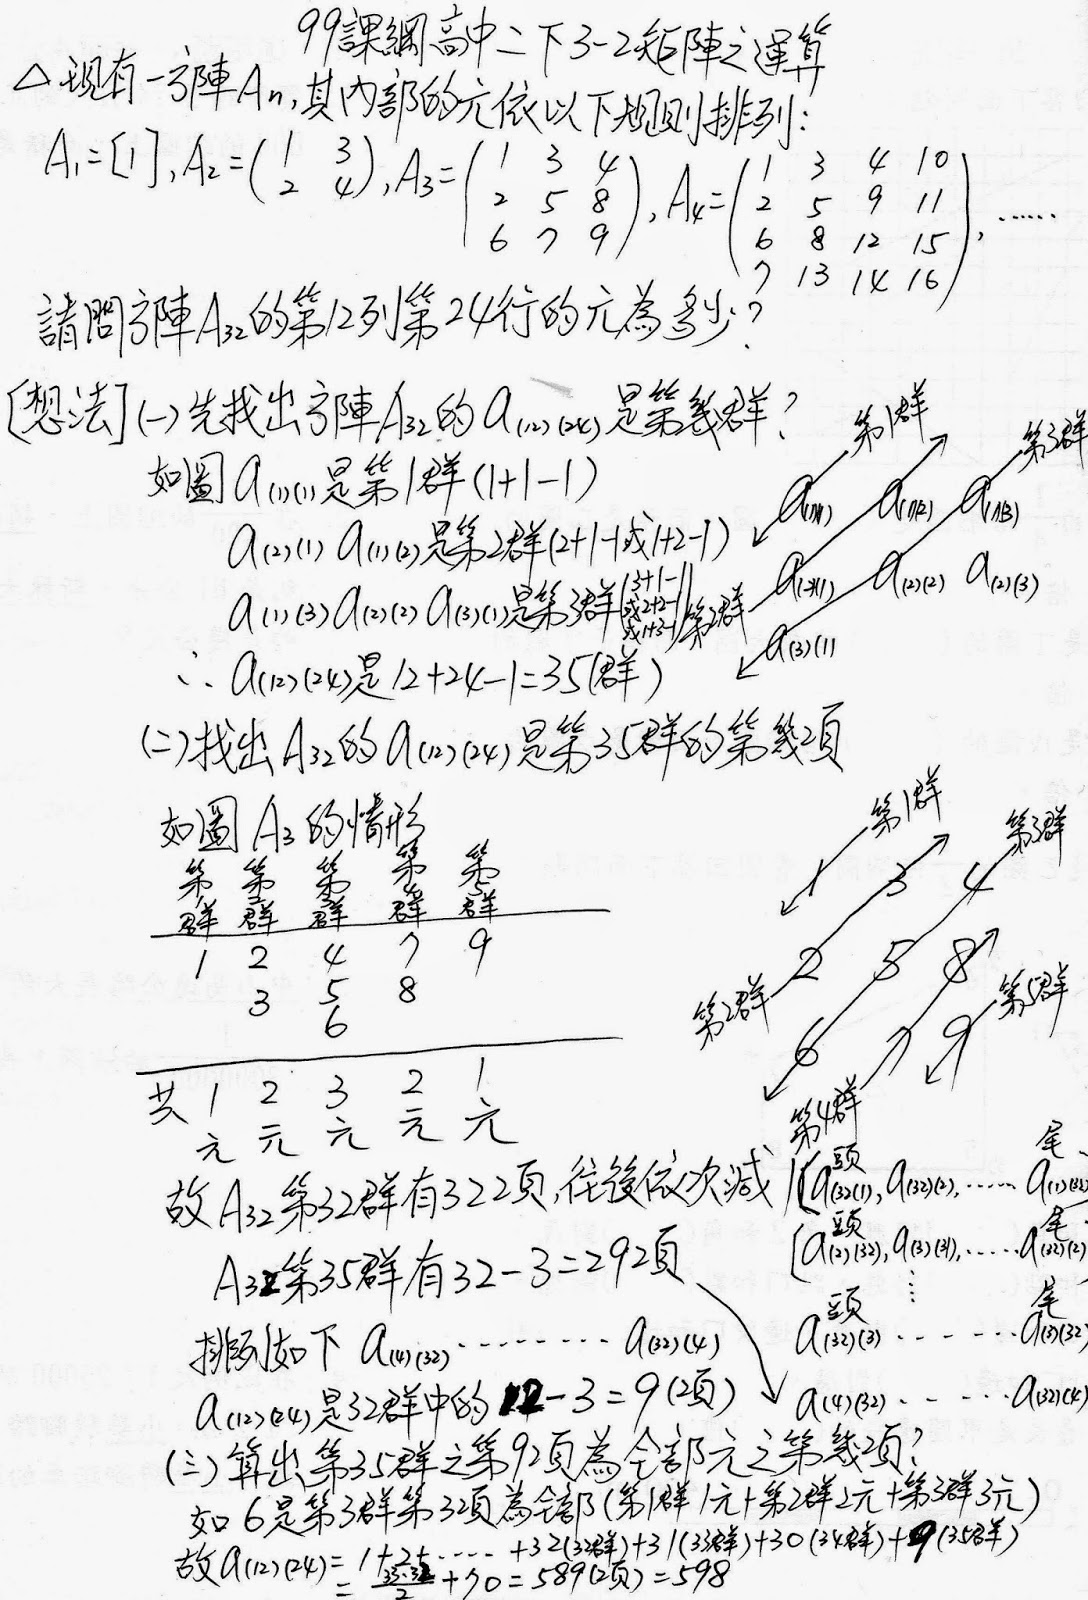 99課綱高中二下3-2矩陣之運算
△現有一方陣An,其內部的元依以下規則排列:
A1=[1], A2=(1 3
2 4), A3=(1 3 4
2 5 8
6 7 9), A4=(1 3 4 10
2 5 9 11
6 8 12 15
7 13 14 16), ......
請問方陣A32的第12列第24行的元為多少?
[想法](一)先找出方陣A32的a(12)(24)是第幾群?
如圖a(1)(1)是第1群(1+1-1)
a(2)(1) a(1)(2)是第2群(2+1-1或1+2-1)
a(1)(3) a(2)(2) a(3)(1)是第3群(3+1-1或2+2-1或1+3-1)
∴a(12)(24)是12+24-1=35(群)
第1群 第3群
a(1)(1) a(1)(2) a(1)(3)
第2群 a(2)(2) a(2)(3)
a(3)(1)
(二)找出A32的a(12)(24)是第35群的第幾項
如圖A3的情形
第1群 第2群 第3群 第4群 第5群
1 2 4 7 9
3 5 8
6
共 1元 2元 3元 2元 1元
第1群 第3群
1 3 4
2 5 8
第2群 第5群
6 7 9
第4群
故A32第32群有32項,往後依次減1
頭 尾
(a(32)(1), a(32)(2), ...... a(1)(32)
頭 尾
(a(2)(32), a(3)(31), ...... a(32)(2)
頭 尾
a(32)(3) ...... a(3)(32)
a(4)(32) ...... a(32)(4)
A32第35群有32-3=29項
排列如下 a(4)(32) ......... a(32)(4)
a(12)(24)是32群中的12-3=9(項)
(三)算出第35群之第9項為全部元之第幾項?
如6是第3群第3項為全部(第1群1元+第2群2元+第3群3元)
故a(12)(24)=1+2+......+32(32群)+31(33群)+30(34群)+9(35群)
=33·32/2+70=589(項)=598